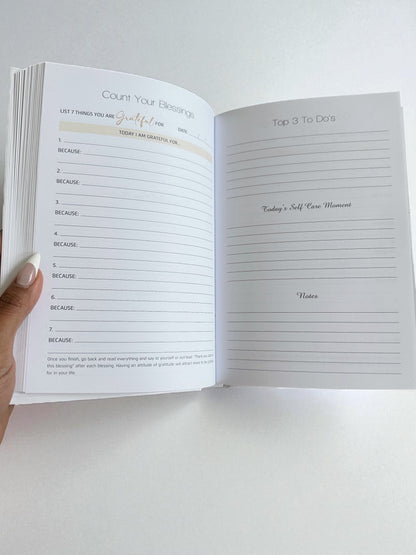 Count Your Blessings
LIST 7 THINGS YOU ARE Grateful FOR DATE
TODAY I AM GRATEFUL FOR...
1.
BECAUSE:
2.
BECAUSE:
3.
BECAUSE:
4.
BECAUSE:
5.
BECAUSE:
6.
BECAUSE:
7
BECAUSE:
Once you finish, go back and read everything and say to yourself or out loud. "Thank you
this blessing" after each blessing. Having an attitude of gratitude will attract more to be
for in your life.
Top 3 To Do's
Today's Self Care Moment
Notes